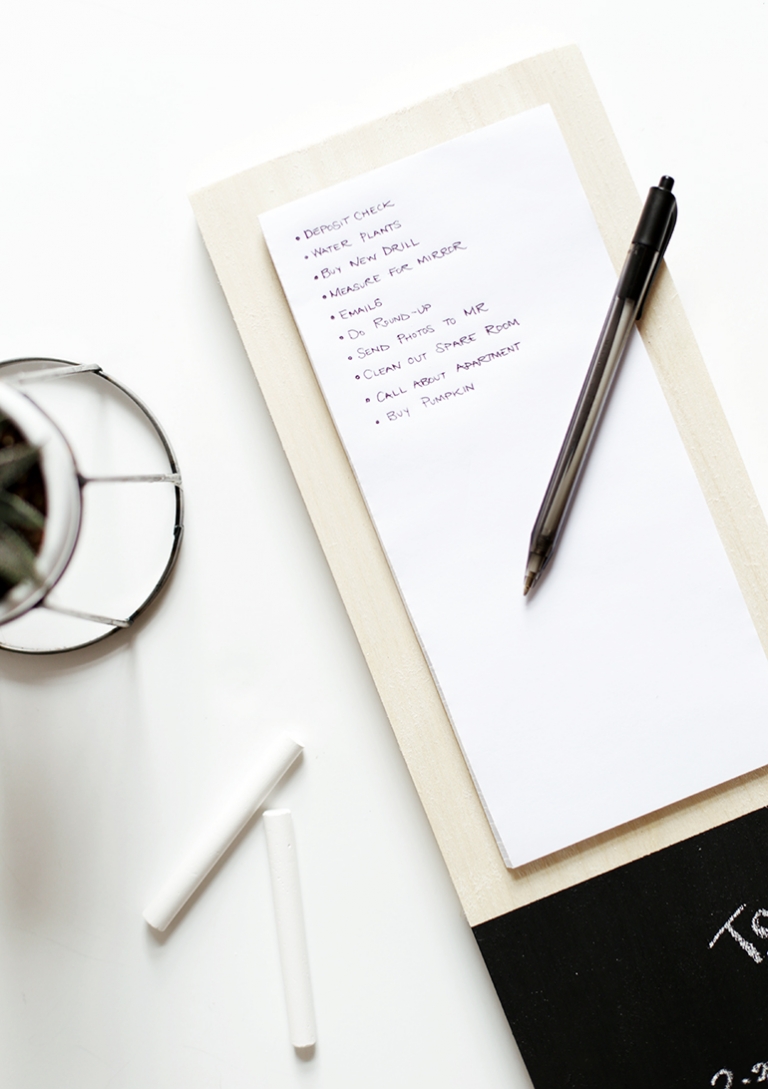 • DEPOSIT CHECK
• WATER PLANTS
• BUY NEW DRILL
• MEASURE FOR MIRROR
• EMAILS
• DO ROUND-UP
• SEND PHOTOS TO MR
• CLEAN OUT SPARE ROOM
• CALL ABOUT APARTMENT
• BUY PUMPKIN